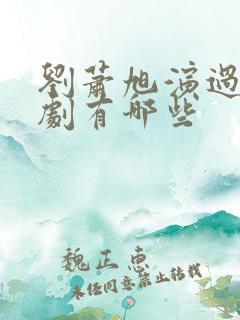 劉蕭旭演過
劇有哪些
魏正惠
未任同意禁止转载